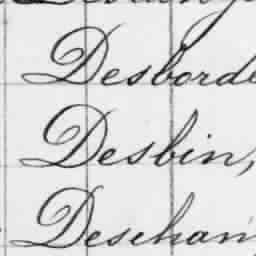 Desborde
Desbin,
Deschan